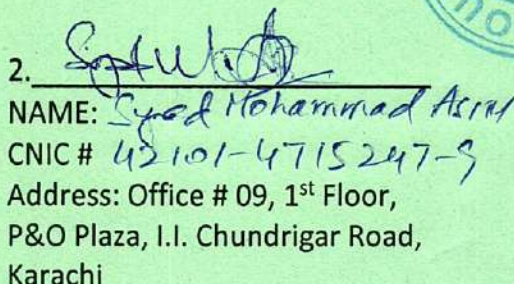 2.
NAME: Syed Mohammad Asim
CNIC # 42101-4715247-9
Address: Office # 09, 1st Floor,
P&O Plaza, I.I. Chundrigar Road,
Karachi